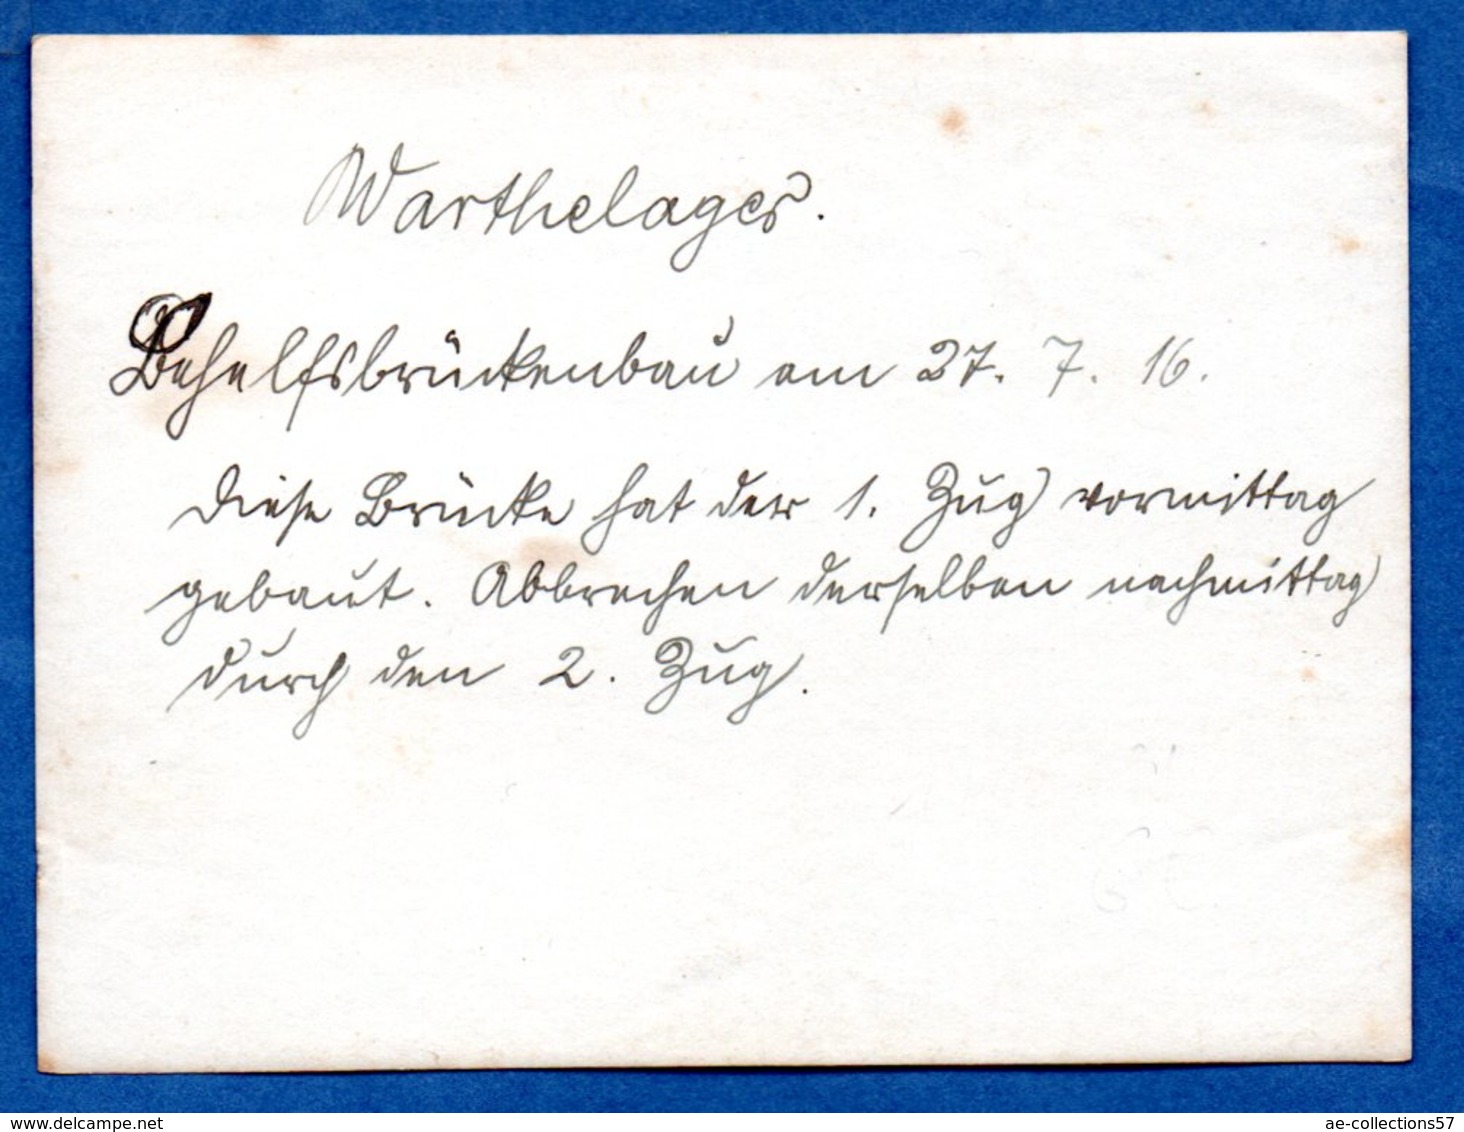 Warthelager.
Behelfsbrückenbau am 27. 7. 16.
Diese Brücke hat der 1. Zug vormittag
gebaut. Abbrechen derselben nachmittag
durch den 2. Zug.
www.delcampe.net
ae-collections57